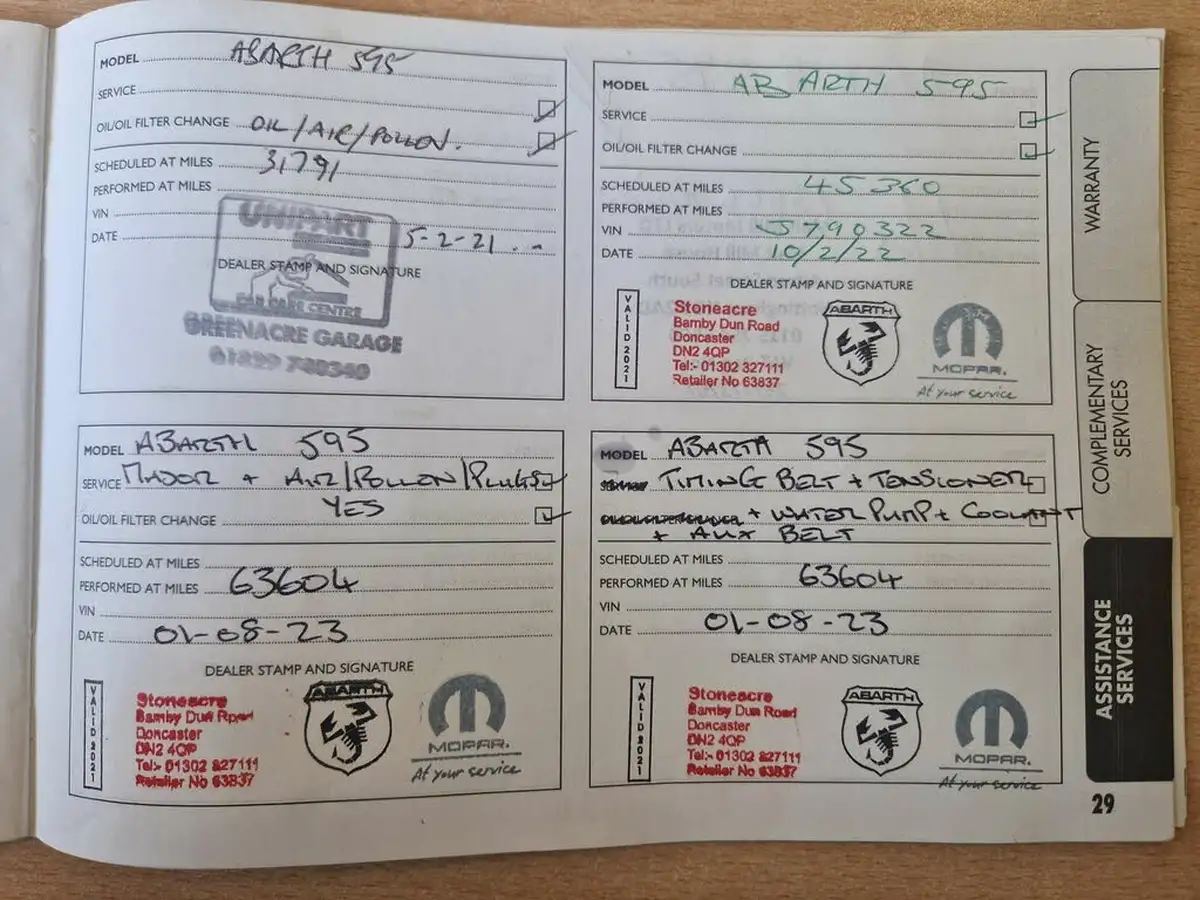 MODEL ABARTH 595
SERVICE
OIL/OIL FILTER CHANGE OIL/AIR/POLLEN.
SCHEDULED AT MILES 31791
PERFORMED AT MILES
VIN
DATE 5-2-21
DEALER STAMP AND SIGNATURE
UNIPART
CAR CARE CENTRE
GREENACRE GARAGE
MODEL ABARTH 595
SERVICE
OIL/OIL FILTER CHANGE
SCHEDULED AT MILES 45360
PERFORMED AT MILES
VIN J790322
DATE 10/2/22
DEALER STAMP AND SIGNATURE
VALID 2021
Stoneacre
Barnby Dun Road
Doncaster
DN2 4QP
Tel:- 01302 327111
Retailer No 63837
ABARTH
MOPAR.
At your service
MODEL ABARTH 595
SERVICE MAJOR + AIR/POLLEN/PLUGS
OIL/OIL FILTER CHANGE YES
SCHEDULED AT MILES
PERFORMED AT MILES 63604
VIN
DATE 01-08-23
DEALER STAMP AND SIGNATURE
VALID 2021
Stoneacre
Barnby Dun Road
Doncaster
DN2 4QP
Tel:- 01302 327111
Retailer No 63837
ABARTH
MOPAR.
At your service
MODEL ABARTH 595
SERVICE TIMING BELT + TENSIONER
OIL/OIL FILTER CHANGE + WATER PUMP + COOLANT
+ AUX BELT
SCHEDULED AT MILES
PERFORMED AT MILES 63604
VIN
DATE 01-08-23
DEALER STAMP AND SIGNATURE
VALID 2021
Stoneacre
Barnby Dun Road
Doncaster
DN2 4QP
Tel:- 01302 327111
Retailer No 63837
ABARTH
MOPAR.
At your service
WARRANTY
COMPLEMENTARY
SERVICES
ASSISTANCE
SERVICES
29